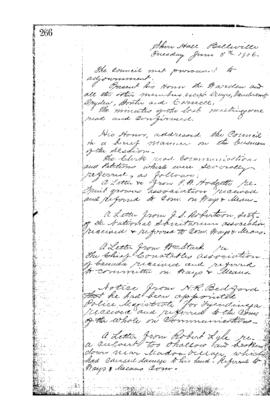 266
Shire Hall Belleville
Tuesday June 5th 1906.
The Council met pursuant to
adjournment.
Present his Honor the Warden and
all the other members except
and
The minutes of the last meeting were
read and confirmed.
His Honor, addressed the Council
in a brief manner on the business
of the session.
The Clerk read Communications
and Petitions which were severally
referred, as follows;
A Letter from re
Fruit growers association received
and referred to Com. on Ways & Means.
A Letter from J.S. Robertson, Secty.
of the National Sanitarium association
received & referred to Com. Ways & Means.
A Letter from Wm re
the Chief Constables association
of Canada received and referred
to committee on Ways & Means
Notice from H.R. Bedford
that he had been appointed
Police Magistrate for Deseronto
received and referred to the Com
of the whole on Communications.
A Letter from Robert Lyle re
a culvert too shallow had broken
down near Madoc village which
had caused damage to his land. Referred to
Ways & Means Com.